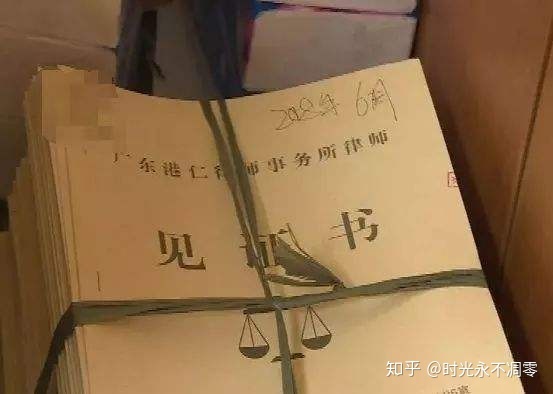 2018年6月
广东港仁律师事务所律师
见证书
知乎 @时光永不凋零